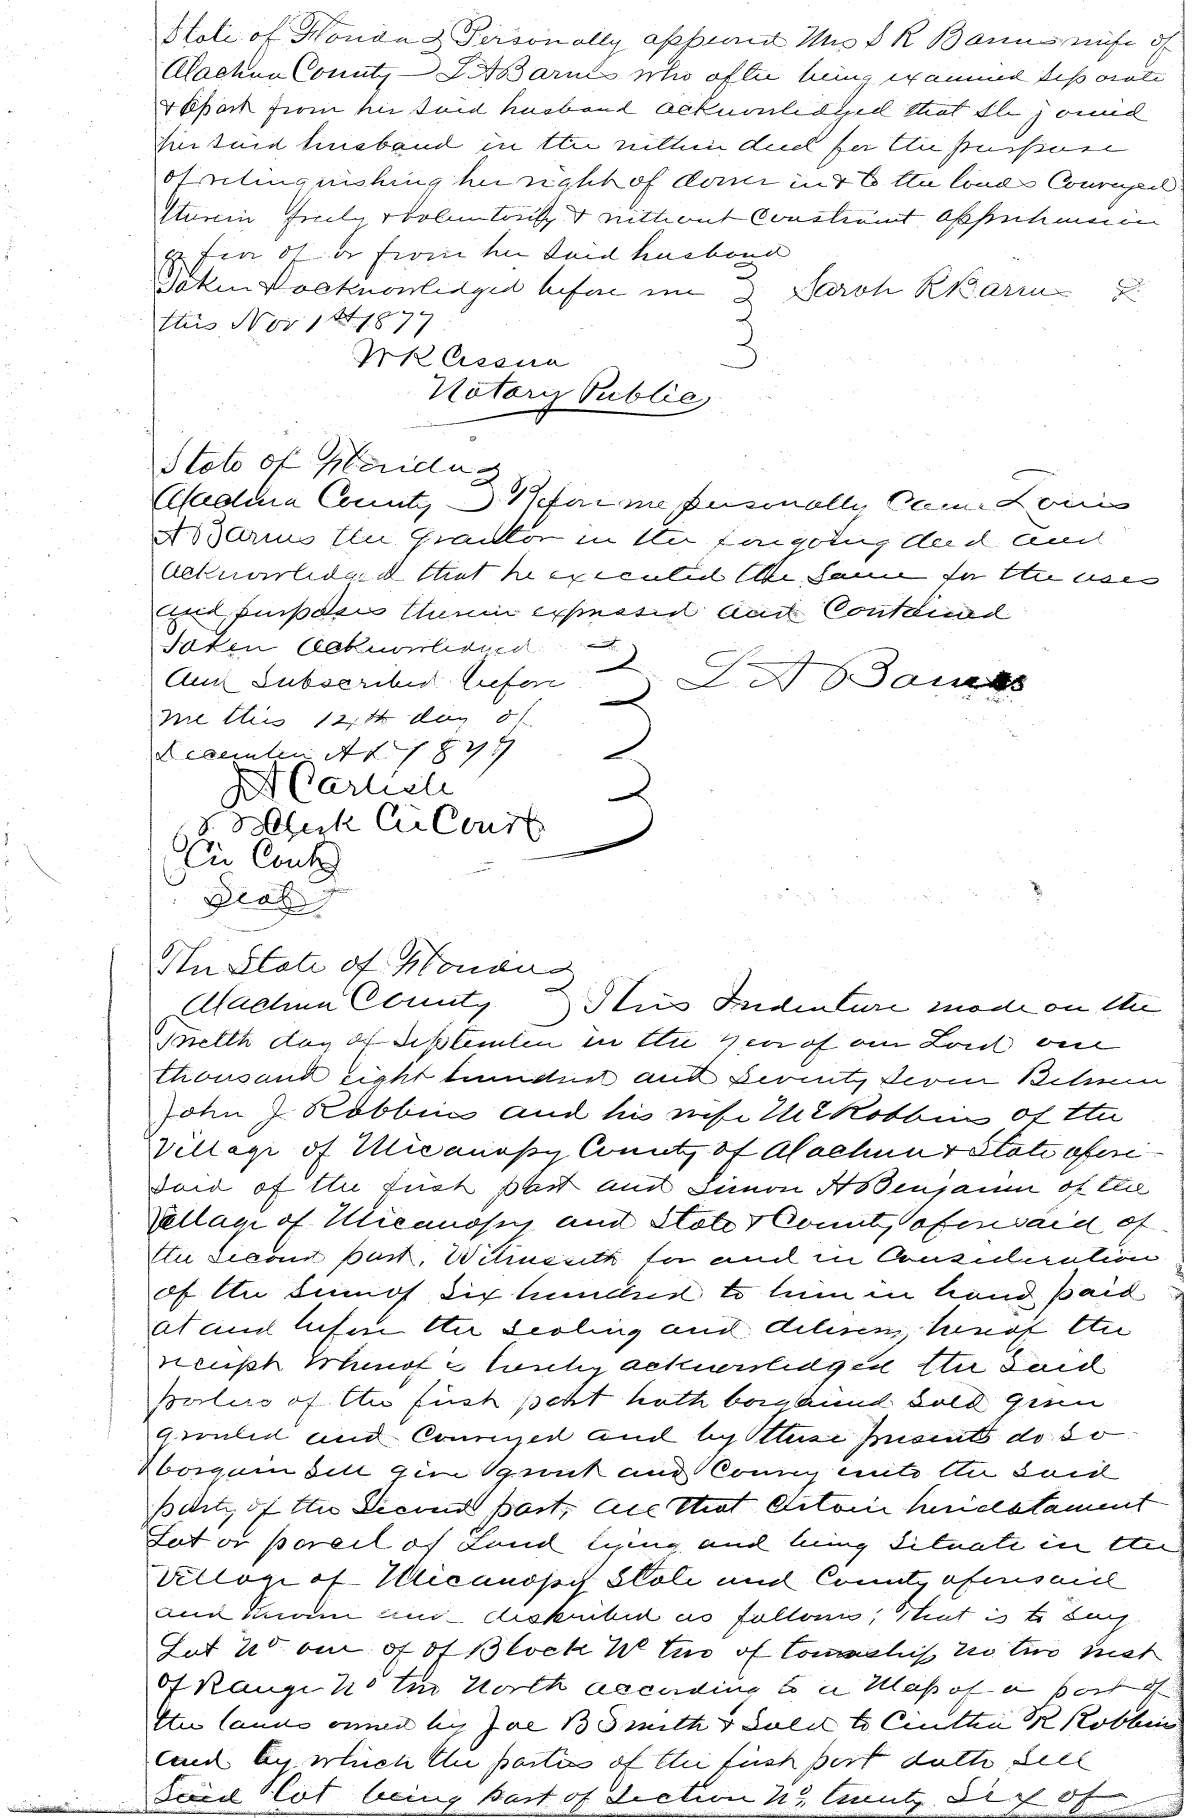 State of Florida } Personally appeared Mrs S R Barnes wife of
Alachua County } L A Barnes who after being examined separate
& apart from her said husband acknowledged that she joined
her said husband in the within deed for the purpose
of relinquishing her right of dower in & to the lands Conveyed
therein freely & voluntarily & without Constraint apprehension
or fear of or from her said husband
Taken & acknowledged before me } Sarah R Barnes
this Nov 1st 1877
W K Cessna
Notary Public
State of Florida }
Alachua County } Before me personally Came Louis
A Barnes the Grantor in the foregoing deed and
acknowledged that he executed the Same for the uses
and purposes therein expressed and Contained
Taken Acknowledged
And Subscribed before } L A Barnes
me this 12th day of
December A D 1877
J A Carlisle
Clerk Cir Court
Cir Court
Seal
The State of Florida }
Alachua County } This Indenture made on the
Twelth day of September in the year of our Lord one
thousand eight hundred and Seventy Seven Between
John J Robbins and his wife M E Robbins of the
Village of Micanopy County of Alachua & State afore
said of the first part and Simon H Benjamin of the
Village of Micanopy and State & County aforesaid of
the Second part, Witnesseth for and in Consideration
of the Sum of Six hundred to him in hand paid
at and before the sealing and delivery hereof the
receipt whereof is hereby acknowledged the Said
parties of the first part hath bargained Sold given
granted and Conveyed and by these presents do so
bargain Sell give grant and Convey unto the Said
party of the Second part, all that Certain heridatament
Lot or parcel of Land lying and being Situate in the
Village of Micanopy State and County aforesaid
and known and described as follows; That is to Say
Lot No one of of Block No two of township No two west
of Range No two North according to a Map of a part of
the lands owned by Joe B Smith & Sold to Cinthia R Robbins
and by which the parties of the first part doth Sell
Said lot being part of Section No. twenty Six of